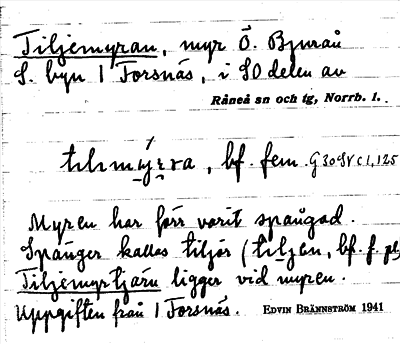 Tiljemyran, myr Ö. Bjuraå
S. byn 1 Forsnäs, i SO delen av
Råneå sn och tg, Norrb. l.
tilimýra, bf. fem. G 30 SV c 1, 125
Myren har förr varit spångad.
Spånger kallas tiljor (tiljen, bf. f. pl.
Tiljemyrtjärn ligger vid myren.
Uppgiften från 1 Forsnäs. EDVIN BRÄNNSTRÖM 1941